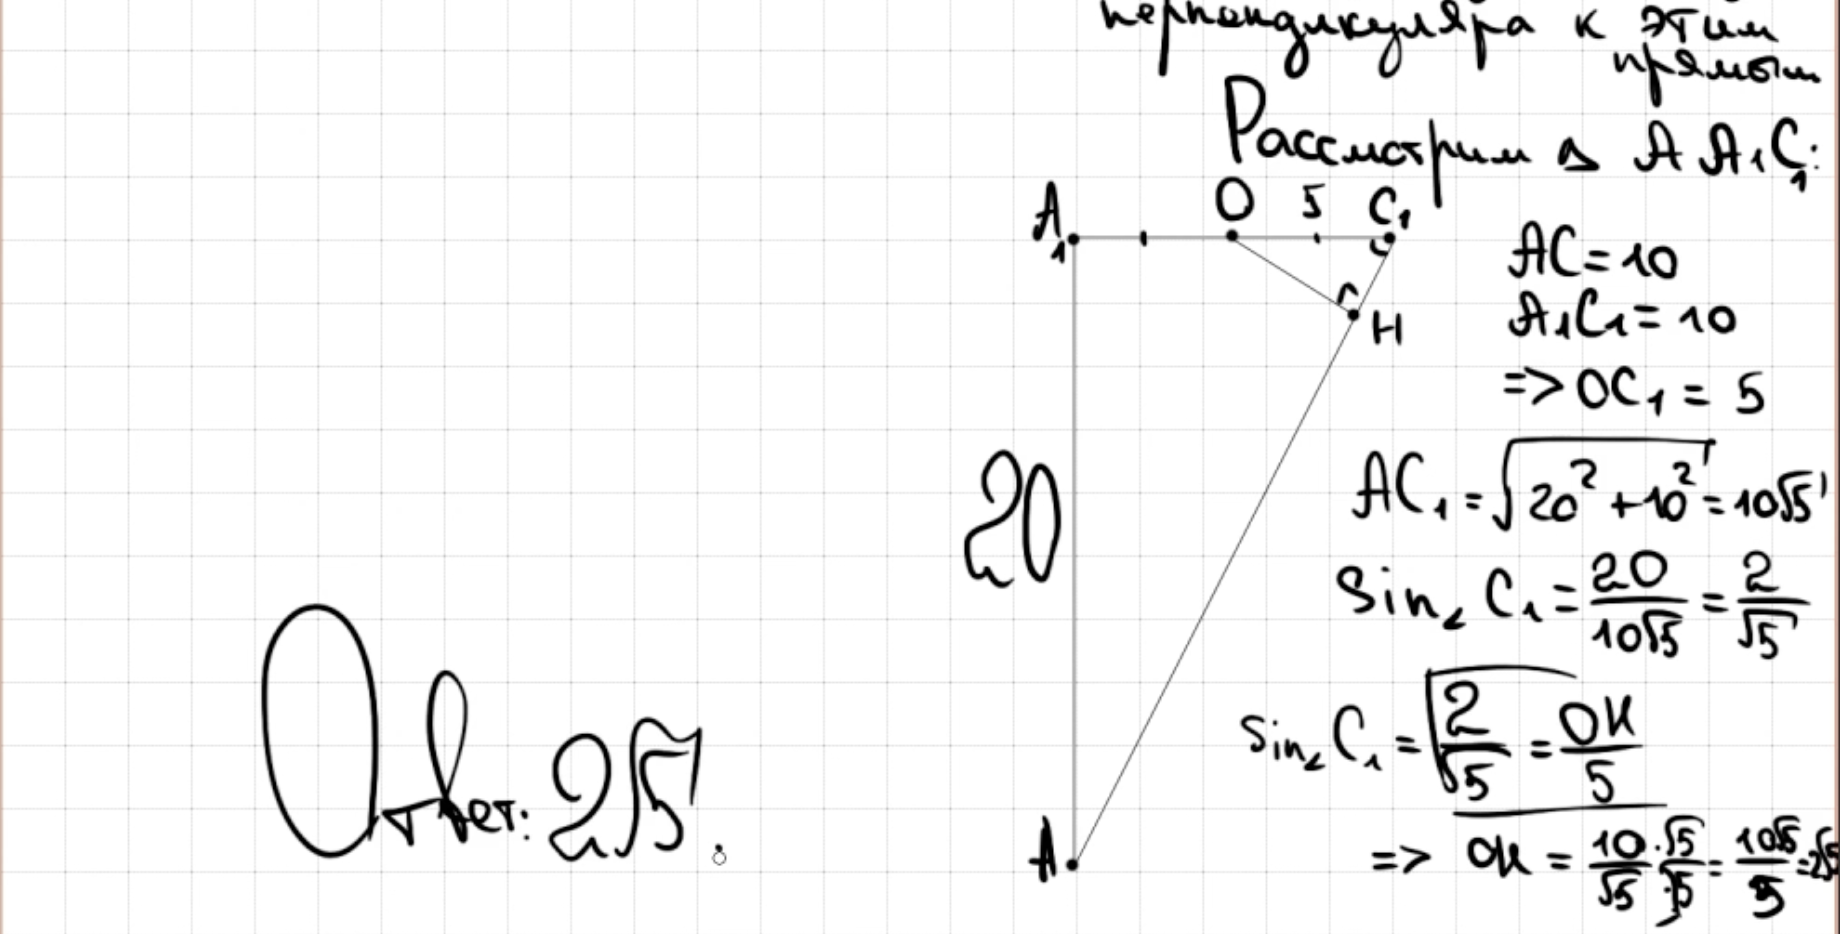 перпендикуляра к этим
прямым
Рассмотрим △ AA₁C₁:
A₁ O 5 C₁
H
20
A
AC = 10
A₁C₁ = 10
=> OC₁ = 5
AC₁ = √(20² + 10²) = 10√5
Sin∠C₁ = 20/10√5 = 2/√5
Sin∠C₁ = 2/√5 = OH/5
=> OH = 10/√5 · √5/√5 = 10√5/5 = 2√5
Ответ: 2√5.